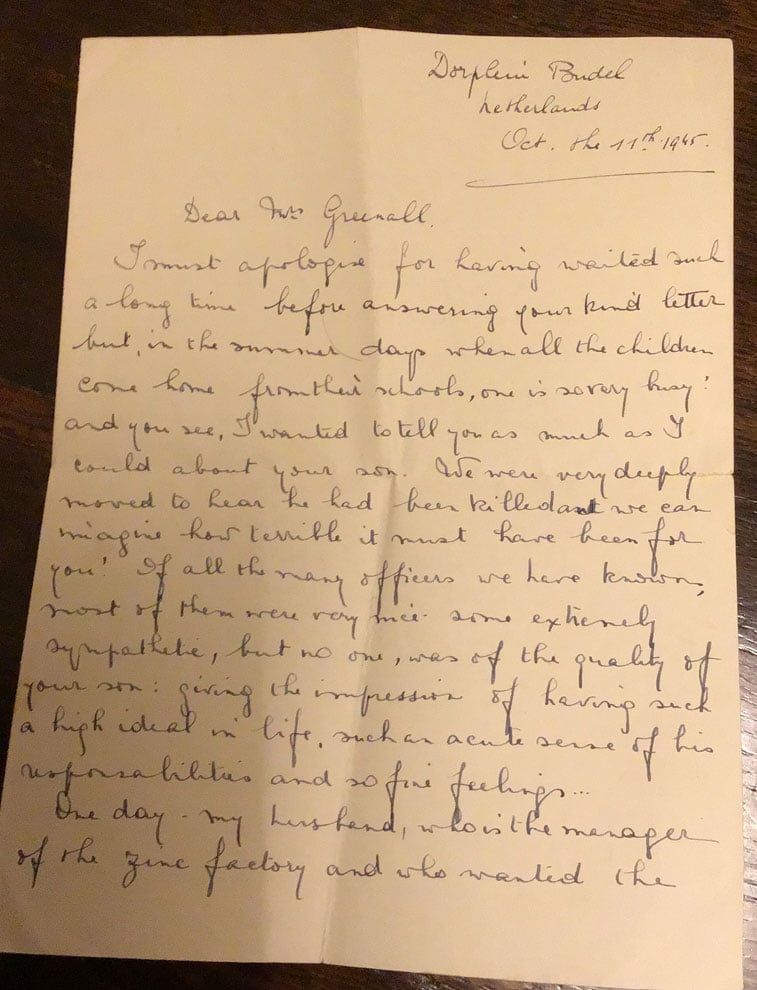 Dorplein Budel
Netherlands
Oct. the 11th 1945.
Dear Mrs Greenall.
I must apologise for having waited such
a long time before answering your kind letter
but, in the summer days when all the children
come home from their schools, one is so very busy!
and you see, I wanted to tell you as much as I
could about your son. We were very deeply
moved to hear he had been killed and we can
imagine how terrible it must have been for
you! If all the many officers we have known,
most of them were very nice some extremely
sympathetic, but no one, was of the quality of
your son: giving the impression of having such
a high ideal in life, such an acute sense of his
responsabilities and so fine feelings...
One day - my husband, who is the manager
of the zinc factory and who wanted the